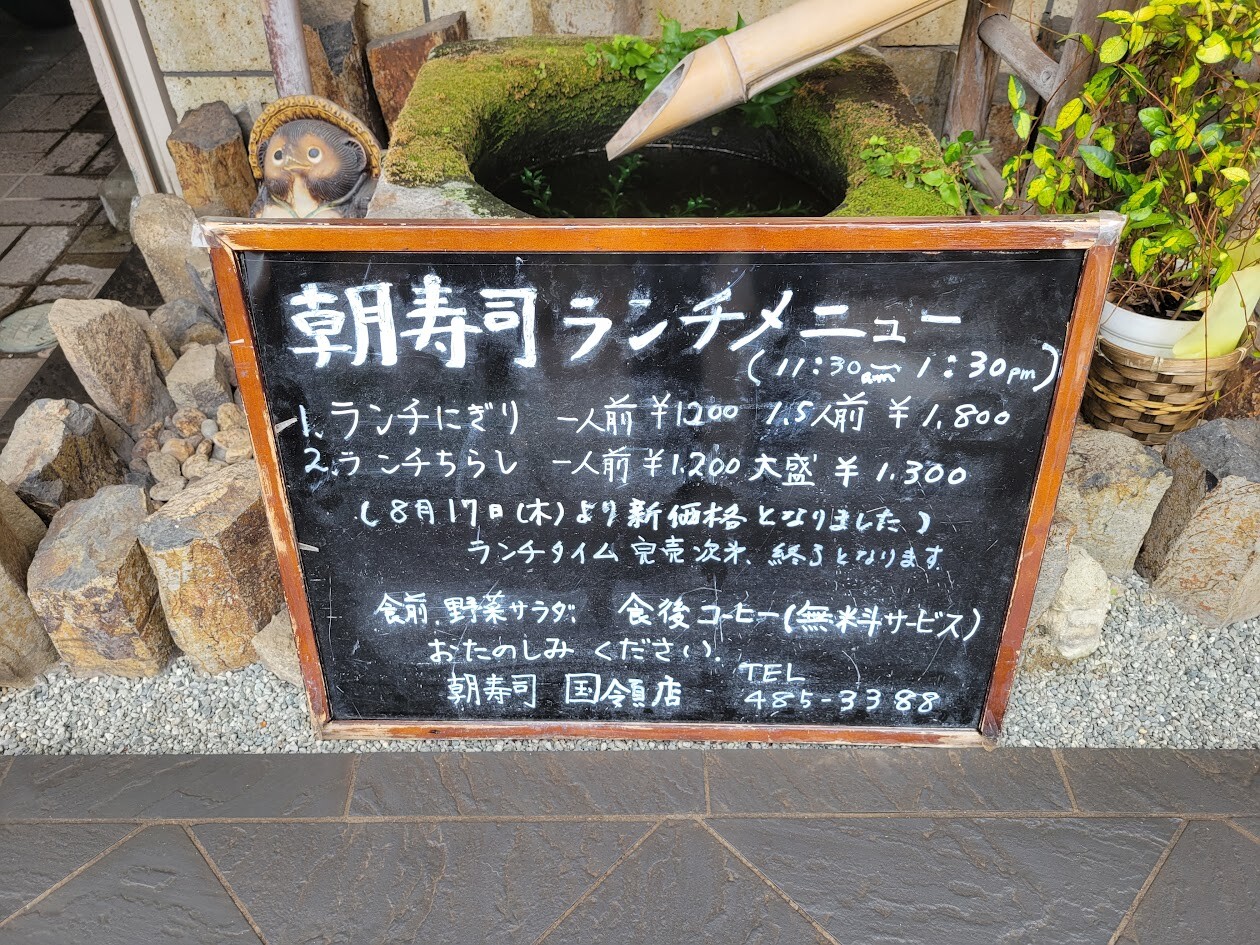 朝寿司 ランチメニュー
(11:30am~1:30pm)
1. ランチにぎり 一人前 ¥1200 1.5人前 ¥1,800
2. ランチちらし 一人前 ¥1.200 大盛 ¥1.300
(8月17日(木)より新価格となりました)
ランチタイム 完売次第、終了となります
食前、野菜サラダ、 食後コーヒー(無料サービス)
おたのしみ ください.
朝寿司 国領店 TEL
485-3388